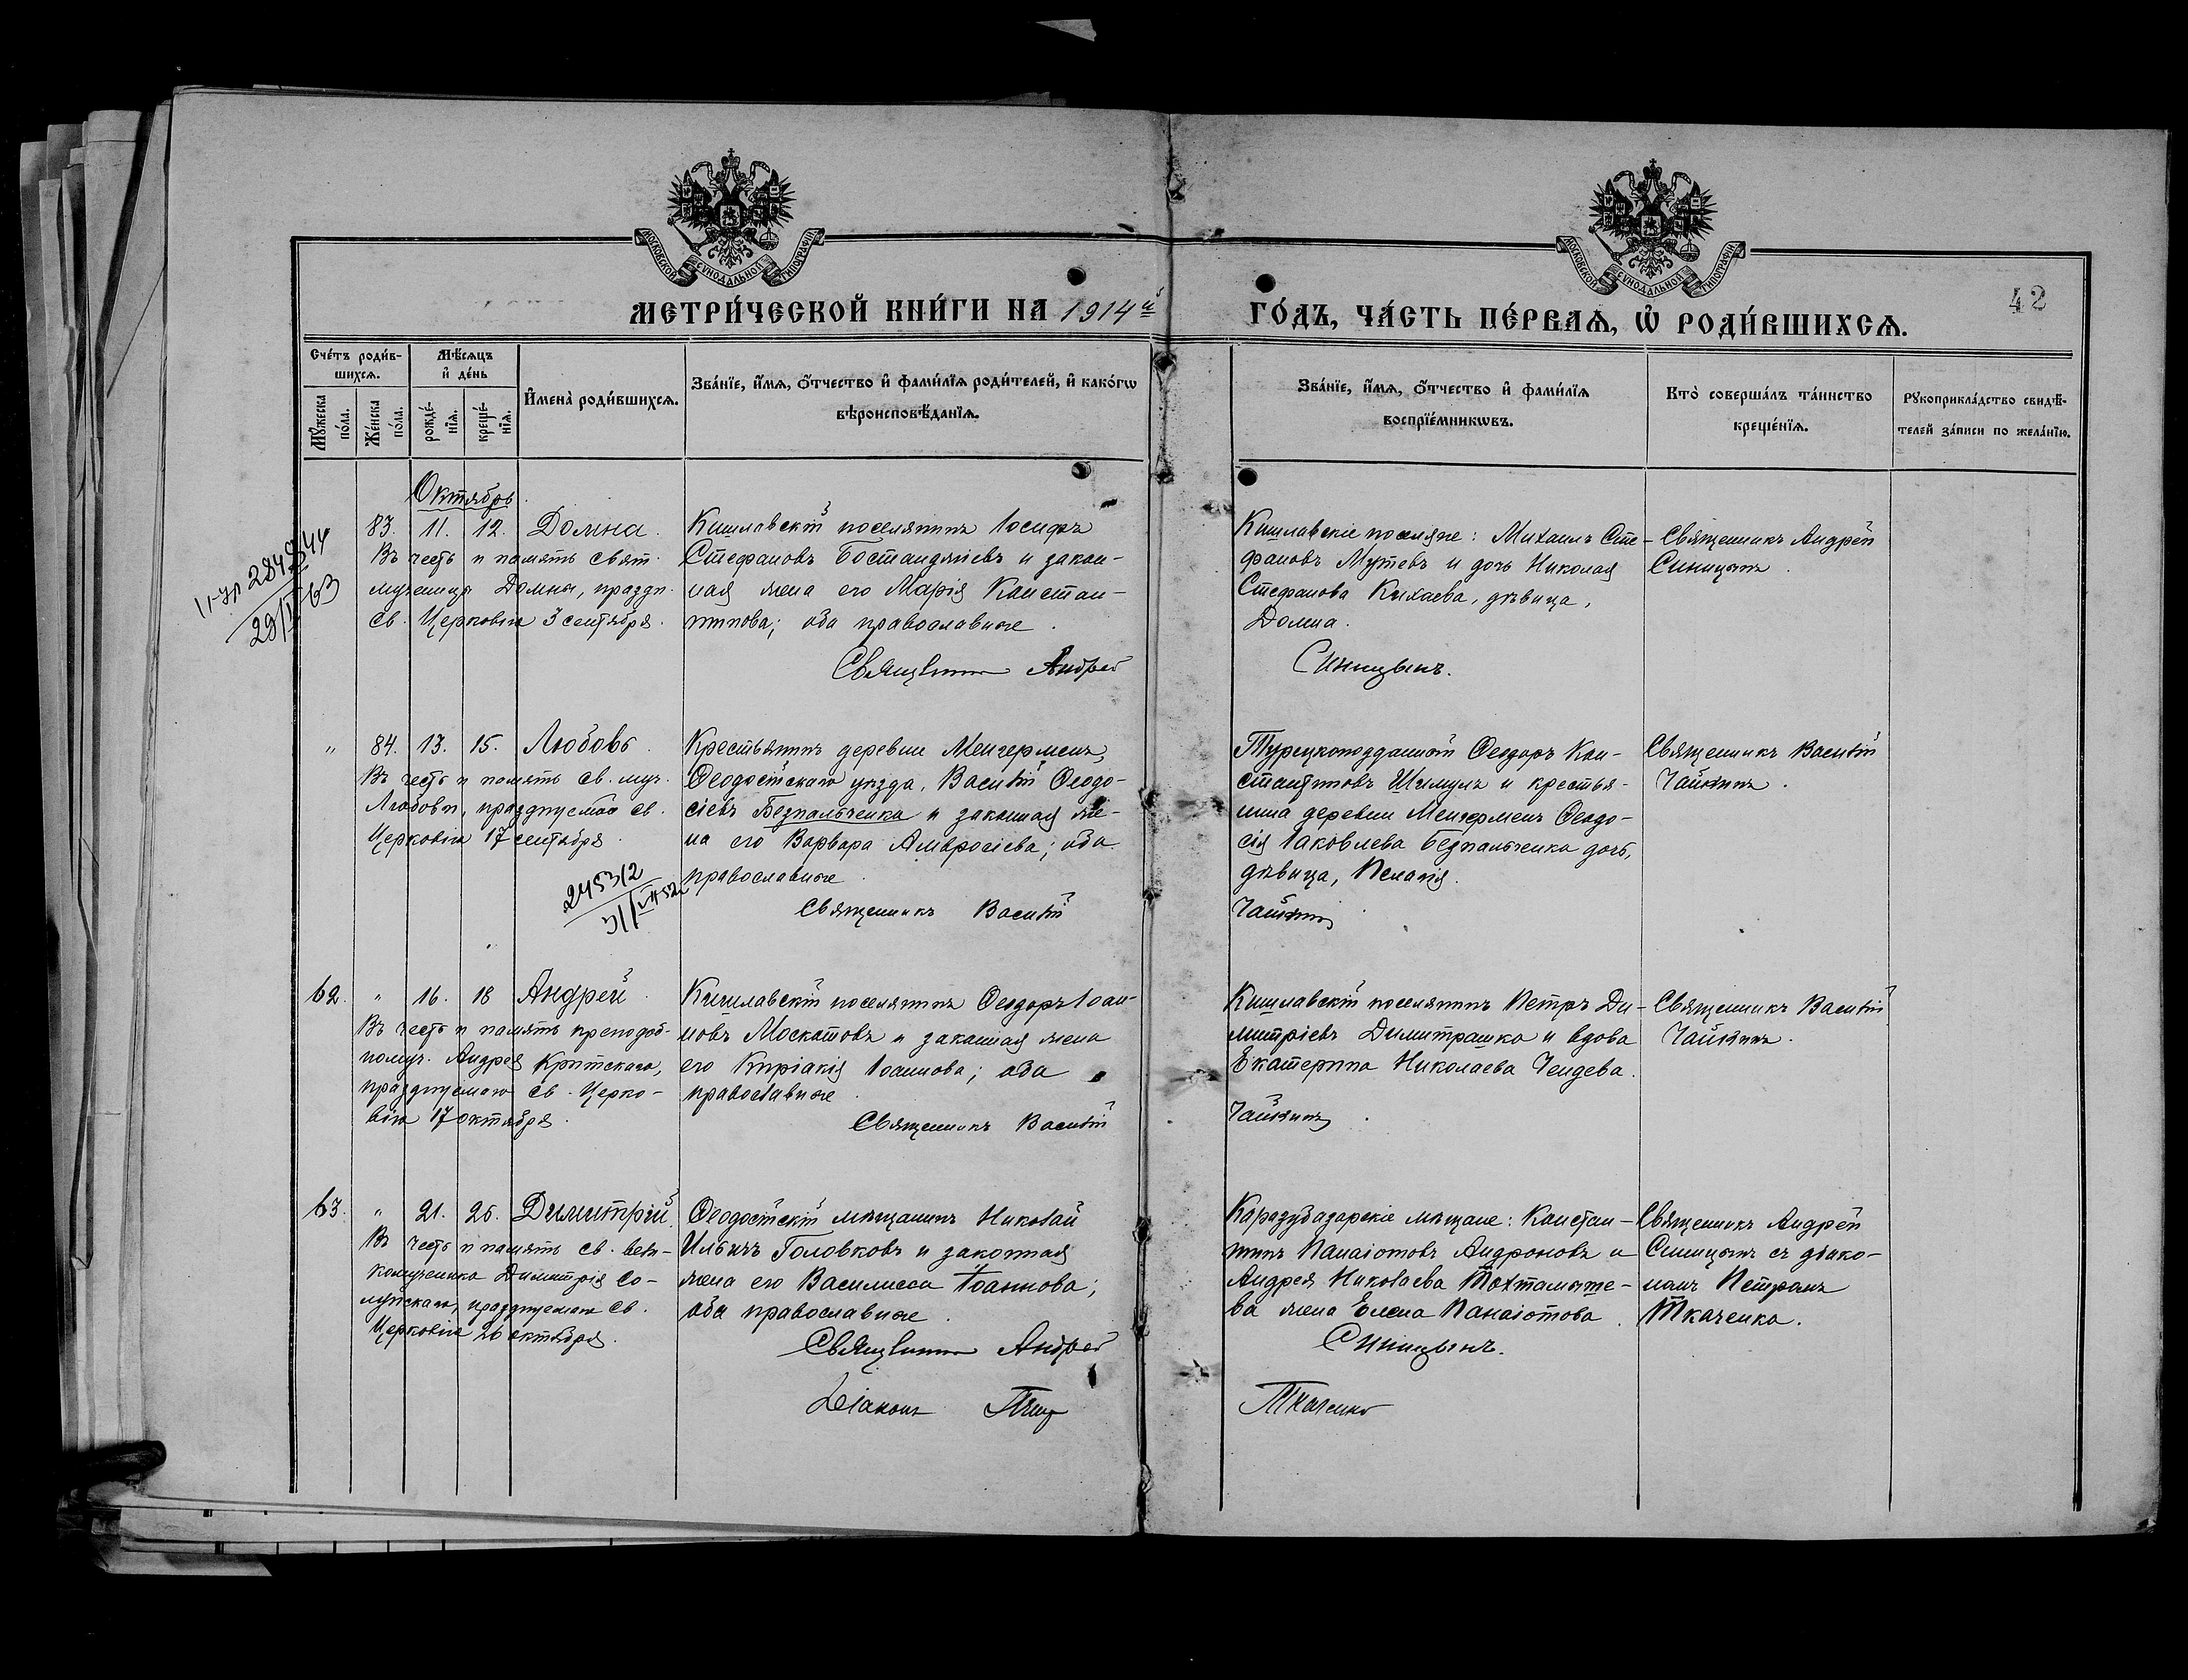 МОСКОВСКОЙ СѴНОДАЛЬНОЙ ТИПОГРАФІИ
МОСКОВСКОЙ СѴНОДАЛЬНОЙ ТИПОГРАФІИ
МЕТРИ́ЧЕСКОЙ КНИ́ГИ НА 1914й ГО́ДЪ, ЧА́СТЬ ПЕ́РВАѦ, Ѡ РОДИ́ВШИХСѦ.
42
Сче́тъ роди́в-
шихсѧ.
Мѣ́сѧцъ
и҆ де́нь
Мꙋ́жеска
по́ла.
Же́нска
по́ла.
рожде́-
нїѧ.
креще́-
нїѧ.
И҆мена̀ роди́вшихсѧ.
Зва́нїе, и҆́мѧ, ѻ҆́тчество и҆ фами́лїѧ роди́телей, и҆ како́гѡ
вѣроисповѣ́данїѧ.
Зва́нїе, и҆́мѧ, ѻ҆́тчество и҆ фами́лїѧ
воспрїе́мникѡвъ.
Кто̀ соверша́лъ та́инство
креще́нїѧ.
Рꙋкоприкла́дство свидѣ́-
телей за́писи по жела́нїю.
Октябрь.
83. 11. 12. Домна.
Въ честь и память свят.
мученицы Домны, праздн.
св. Церковію 3 сентября.
Кишлавскій поселянинъ Іосифъ
Стефановъ Бостанджіевъ и закон-
ная жена его Марія Констан-
тинова; оба православные.
Священникъ Андрей
Кишлавскіе поселяне: Михаилъ Сте-
фановъ Мутевъ и дочь Николая
Стефанова Кихаева, дѣвица,
Домна.
Синицынъ.
Священникъ Андрей
Синицынъ.
" 84. 13. 15. Любовь.
Въ честь и память св. муч.
Любови, празднуемой св.
Церковію 17 сентября.
245312
Крестьянинъ деревни Менгерменъ,
Ѳеодосійскаго уѣзда, Василій Ѳеодо-
сіевъ Безпальченко и законная же-
на его Варвара Амвросіева; оба
православные.
Священникъ Василій
Турецкоподданный Ѳеодоръ Кон-
стантиновъ Шимулъ и крестья-
нина деревни Менгерменъ Ѳеодо-
сія Іаковлева Безпальченко дочь,
дѣвица, Пелагія.
Чайкинъ
Священникъ Василій
Чайкинъ.
62. " 16. 18 Андрей.
Въ честь и память преподоб-
номуч. Андрея Критскаго,
празднуемаго св. Церко-
вію 17 октября.
Кишлавскій поселянинъ Ѳеодоръ Іоан-
новъ Москатовъ и законная жена
его Киріакія Іоаннова; оба
православные.
Священникъ Василій
Кишлавскій поселянинъ Петръ Ди-
митріевъ Димитрашко и вдова
Екатерина Николаева Чендева.
Чайкинъ.
Священникъ Василій
Чайкинъ.
63. " 21. 26. Димитрій.
Въ честь и память св. вели-
комученика Димитрія Со-
лунскаго, празднуемаго св.
Церковію 26 октября.
Ѳеодосійскій мѣщанинъ Николай
Ильичъ Головковъ и законная
жена его Василисса Іоаннова;
оба православные.
Священникъ Андрей
Діаконъ Петръ
Карасубазарскіе мѣщане: Констан-
тинъ Панаіотовъ Андроновъ и
Андрея Николаева Тохтамыше-
ва жена Елена Панаіотова.
Синицынъ.
Ткаченко
Священникъ Андрей
Синицынъ съ діако-
номъ Петромъ
Ткаченко.